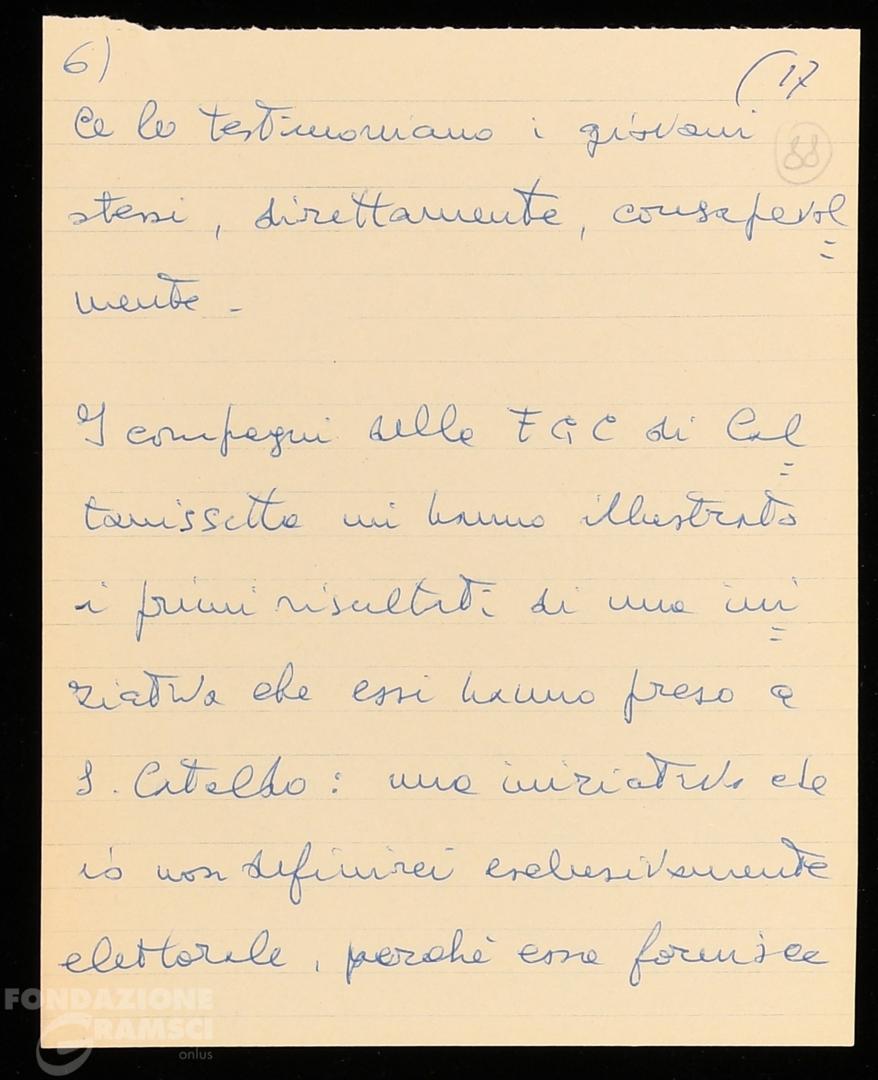 6)
(17
88
Ce lo testimoniano i giovani
stessi, direttamente, consapevol
=
mente -
I compagni della FGC di Cal
=
tanissetta mi hanno illustrato
i primi risultati di una ini
=
ziativa che essi hanno preso a
S. Cataldo: una iniziativa che
io non definirei esclusivamente
elettorale, perché essa fornisce
FONDAZIONE
GRAMSCI
onlus